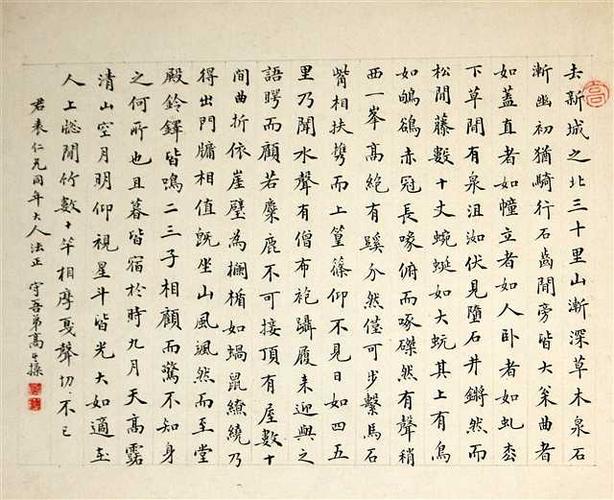 去新城之北三十里山漸深草木泉石
漸幽初猶騎行石齒間旁皆大枀曲者
如蓋直者如幢立者如人卧者如虬枀
下草間有泉沮洳伏見墮石井鏘然而
松間藤數十丈蜿蜒如大蚖其上有鳥
如鴝鵒赤冠長喙俯而啄磔然有聲稍
西一峯高絶有蹊介然僅可步繫馬石
觜相扶攜而上篁篠仰不見日如四五
里乃聞水聲有僧布袍躡履来迎與之
語愕而顧若麋鹿不可接頂有屋數十
間曲折依崖壁為欄楯如蝸鼠繚繞乃
得出門牖相值既坐山風颯然而至堂
殿鈴鐸皆鳴二三子相顧而驚不知身
之何所也且暮皆宿於時九月天高露
清山空月明仰視星斗皆光大如適在
人上窻間竹數十竿相摩戛聲切々不已
君表仁兄同年大人法正 守吾弟高操
高